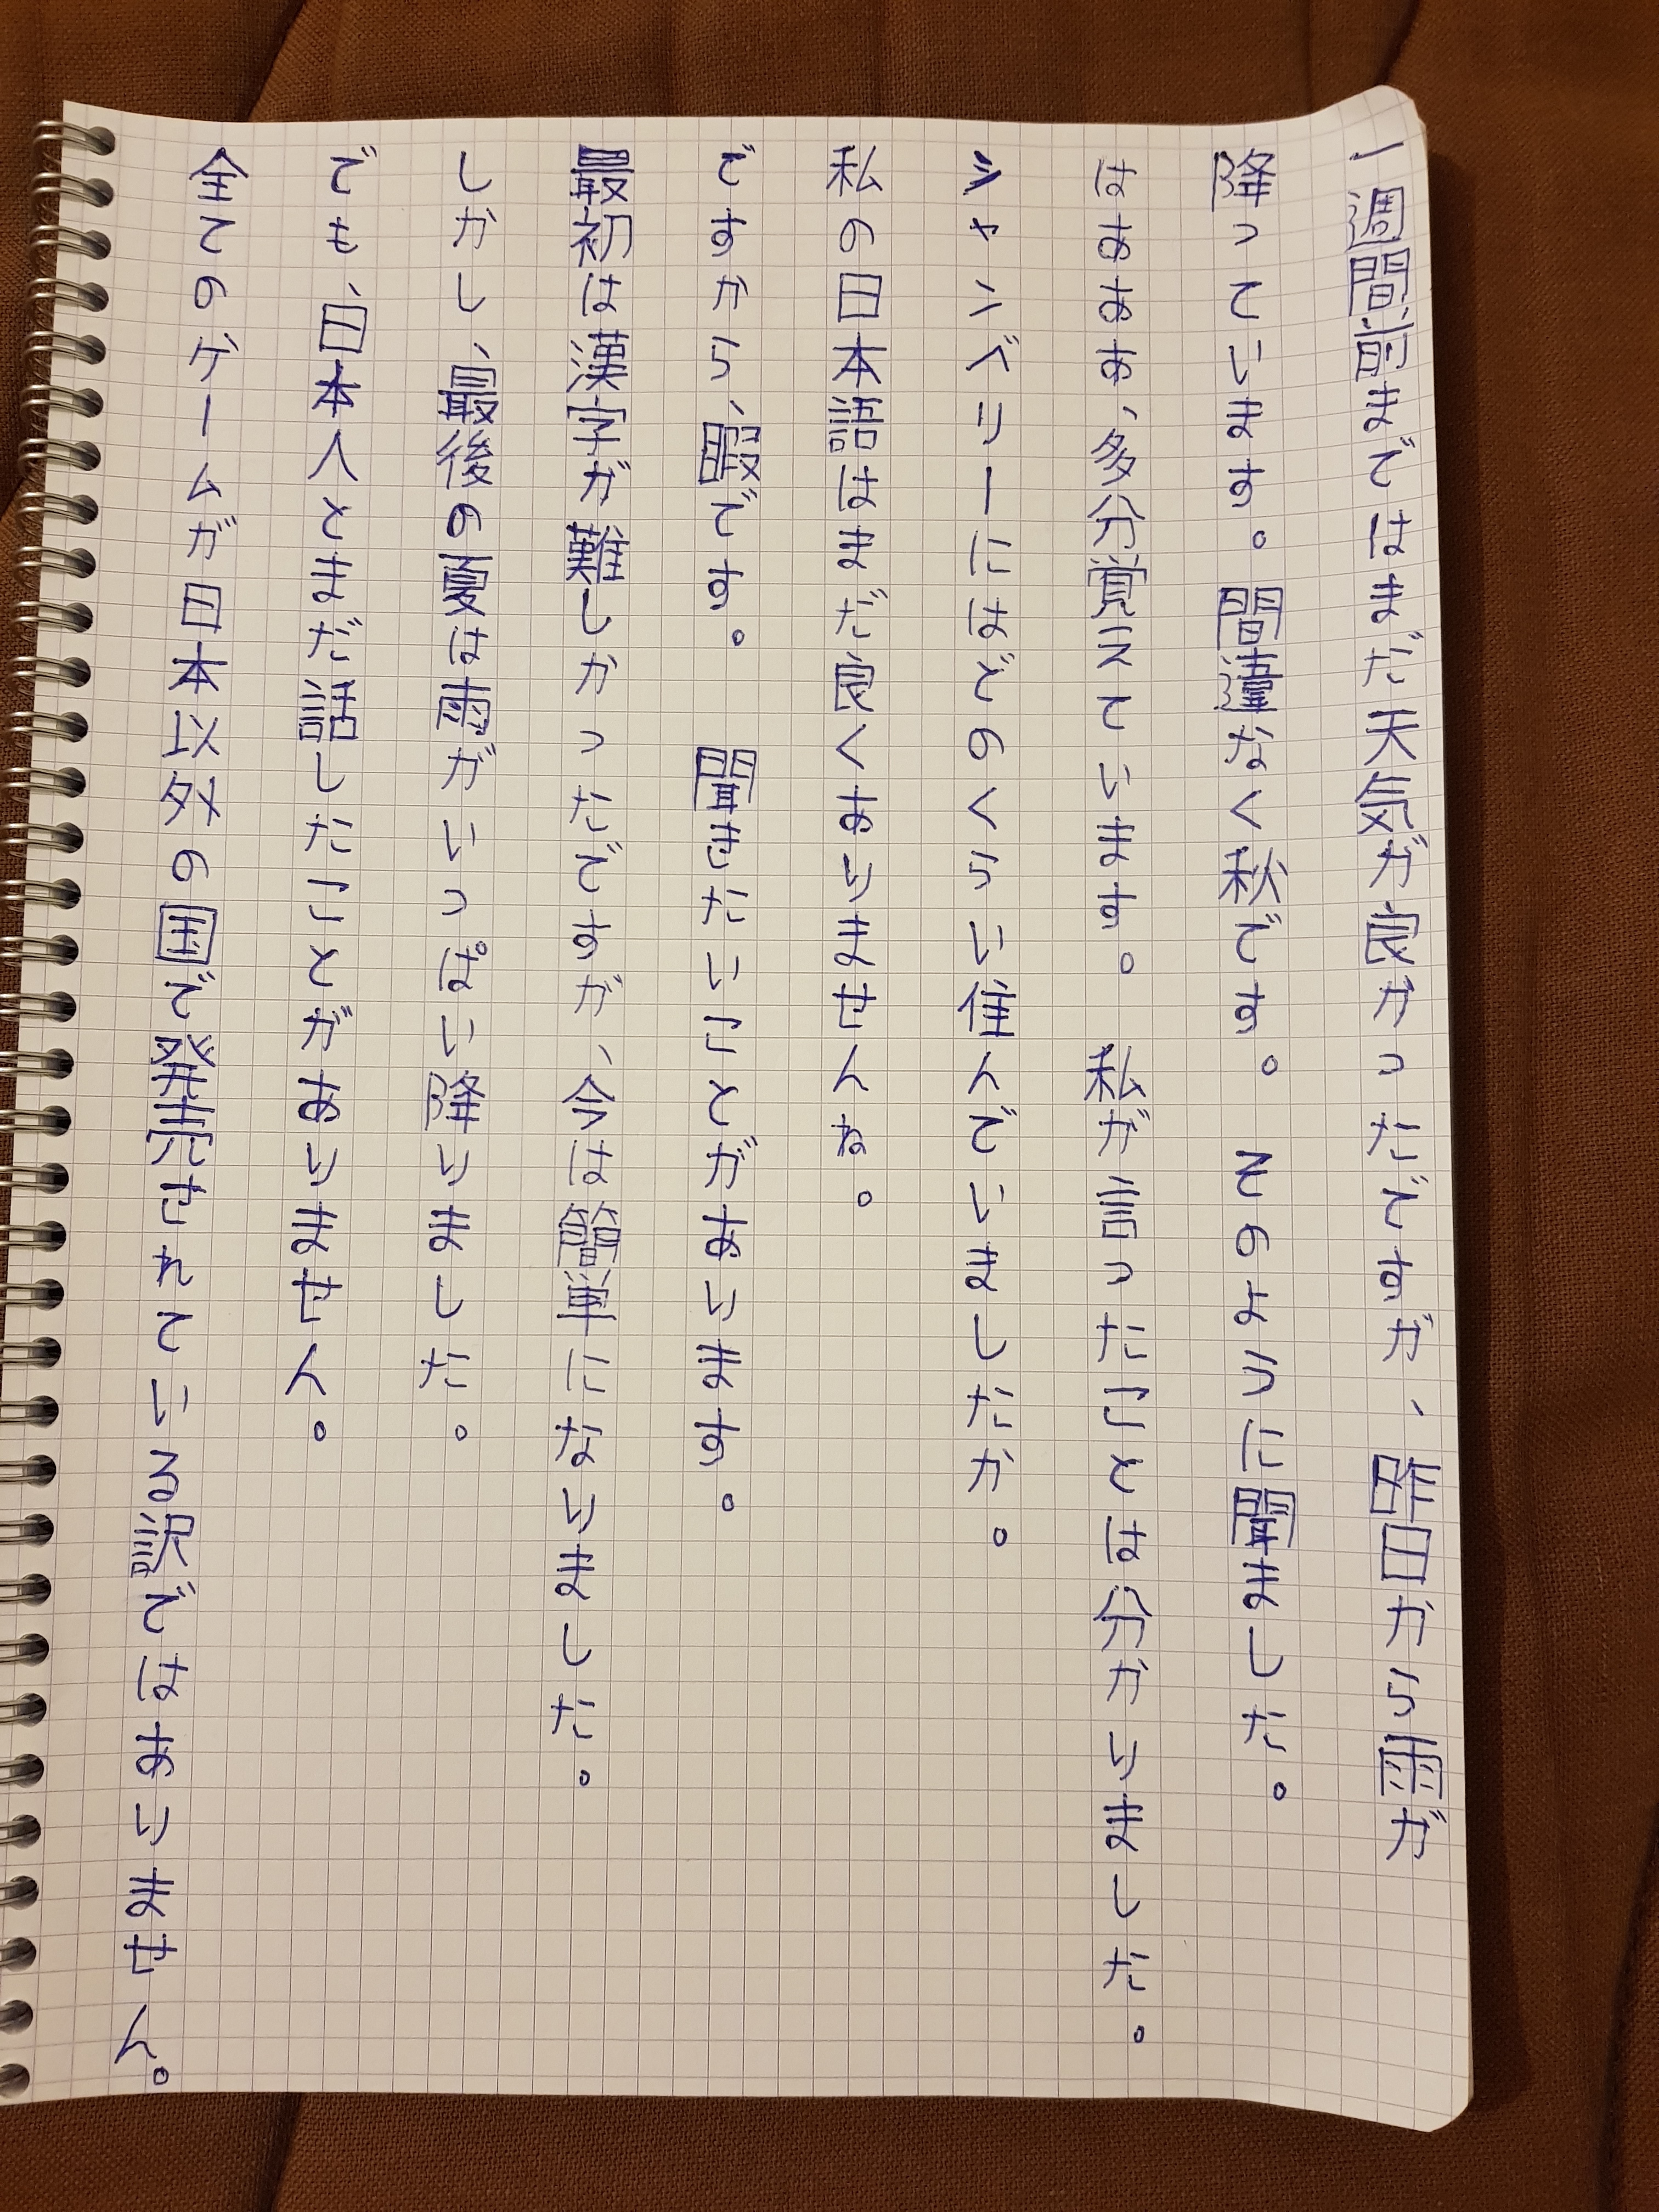 一週間前まではまだ天気が良かったですが、昨日から雨が
降っています。間違なく秋です。そのように聞ました。
はあああ、多分覚えています。私が言ったことは分かりました。
にはどのくらい住んでいましたか。
私の日本語はまだ良くありませんね。
ですから、暇です。 聞きたいことがあります。
最初は漢字が難しかったですが、今は簡単になりました。
しかし、最後の夏は雨がいっぱい降りました。
でも、日本人とまだ話したことがありません。
全てのゲームが日本以外の国で発売されている訳ではありません。